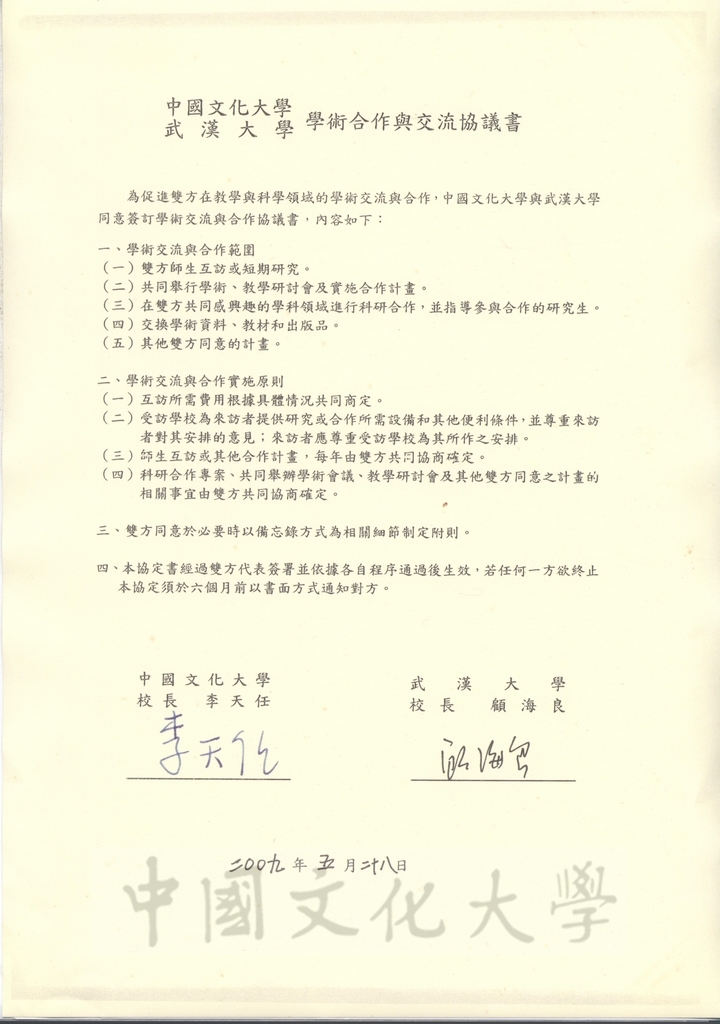 中國文化大學
武漢大學
學術合作與交流協議書
為促進雙方在教學與科學領域的學術交流與合作，中國文化大學與武漢大學
同意簽訂學術交流與合作協議書，內容如下：
一、學術交流與合作範圍
（一）雙方師生互訪或短期研究。
（二）共同舉行學術、教學研討會及實施合作計畫。
（三）在雙方共同感興趣的學科領域進行科研合作，並指導參與合作的研究生。
（四）交換學術資料、教材和出版品。
（五）其他雙方同意的計畫。
二、學術交流與合作實施原則
（一）互訪所需費用根據具體情況共同商定。
（二）受訪學校為來訪者提供研究或合作所需設備和其他便利條件，並尊重來訪
者對其安排的意見；來訪者應尊重受訪學校為其所作之安排。
（三）師生互訪或其他合作計畫，每年由雙方共同協商確定。
（四）科研合作專案、共同舉辦學術會議、教學研討會及其他雙方同意之計畫的
相關事宜由雙方共同協商確定。
三、雙方同意於必要時以備忘錄方式為相關細節制定附則。
四、本協定書經過雙方代表簽署並依據各自程序通過後生效，若任何一方欲終止
本協定須於六個月前以書面方式通知對方。
中國文化大學
校長 李天任
李天任
武漢大學
校長 顧海良
顾海良
二00九年五月二十八日
中國文化大學